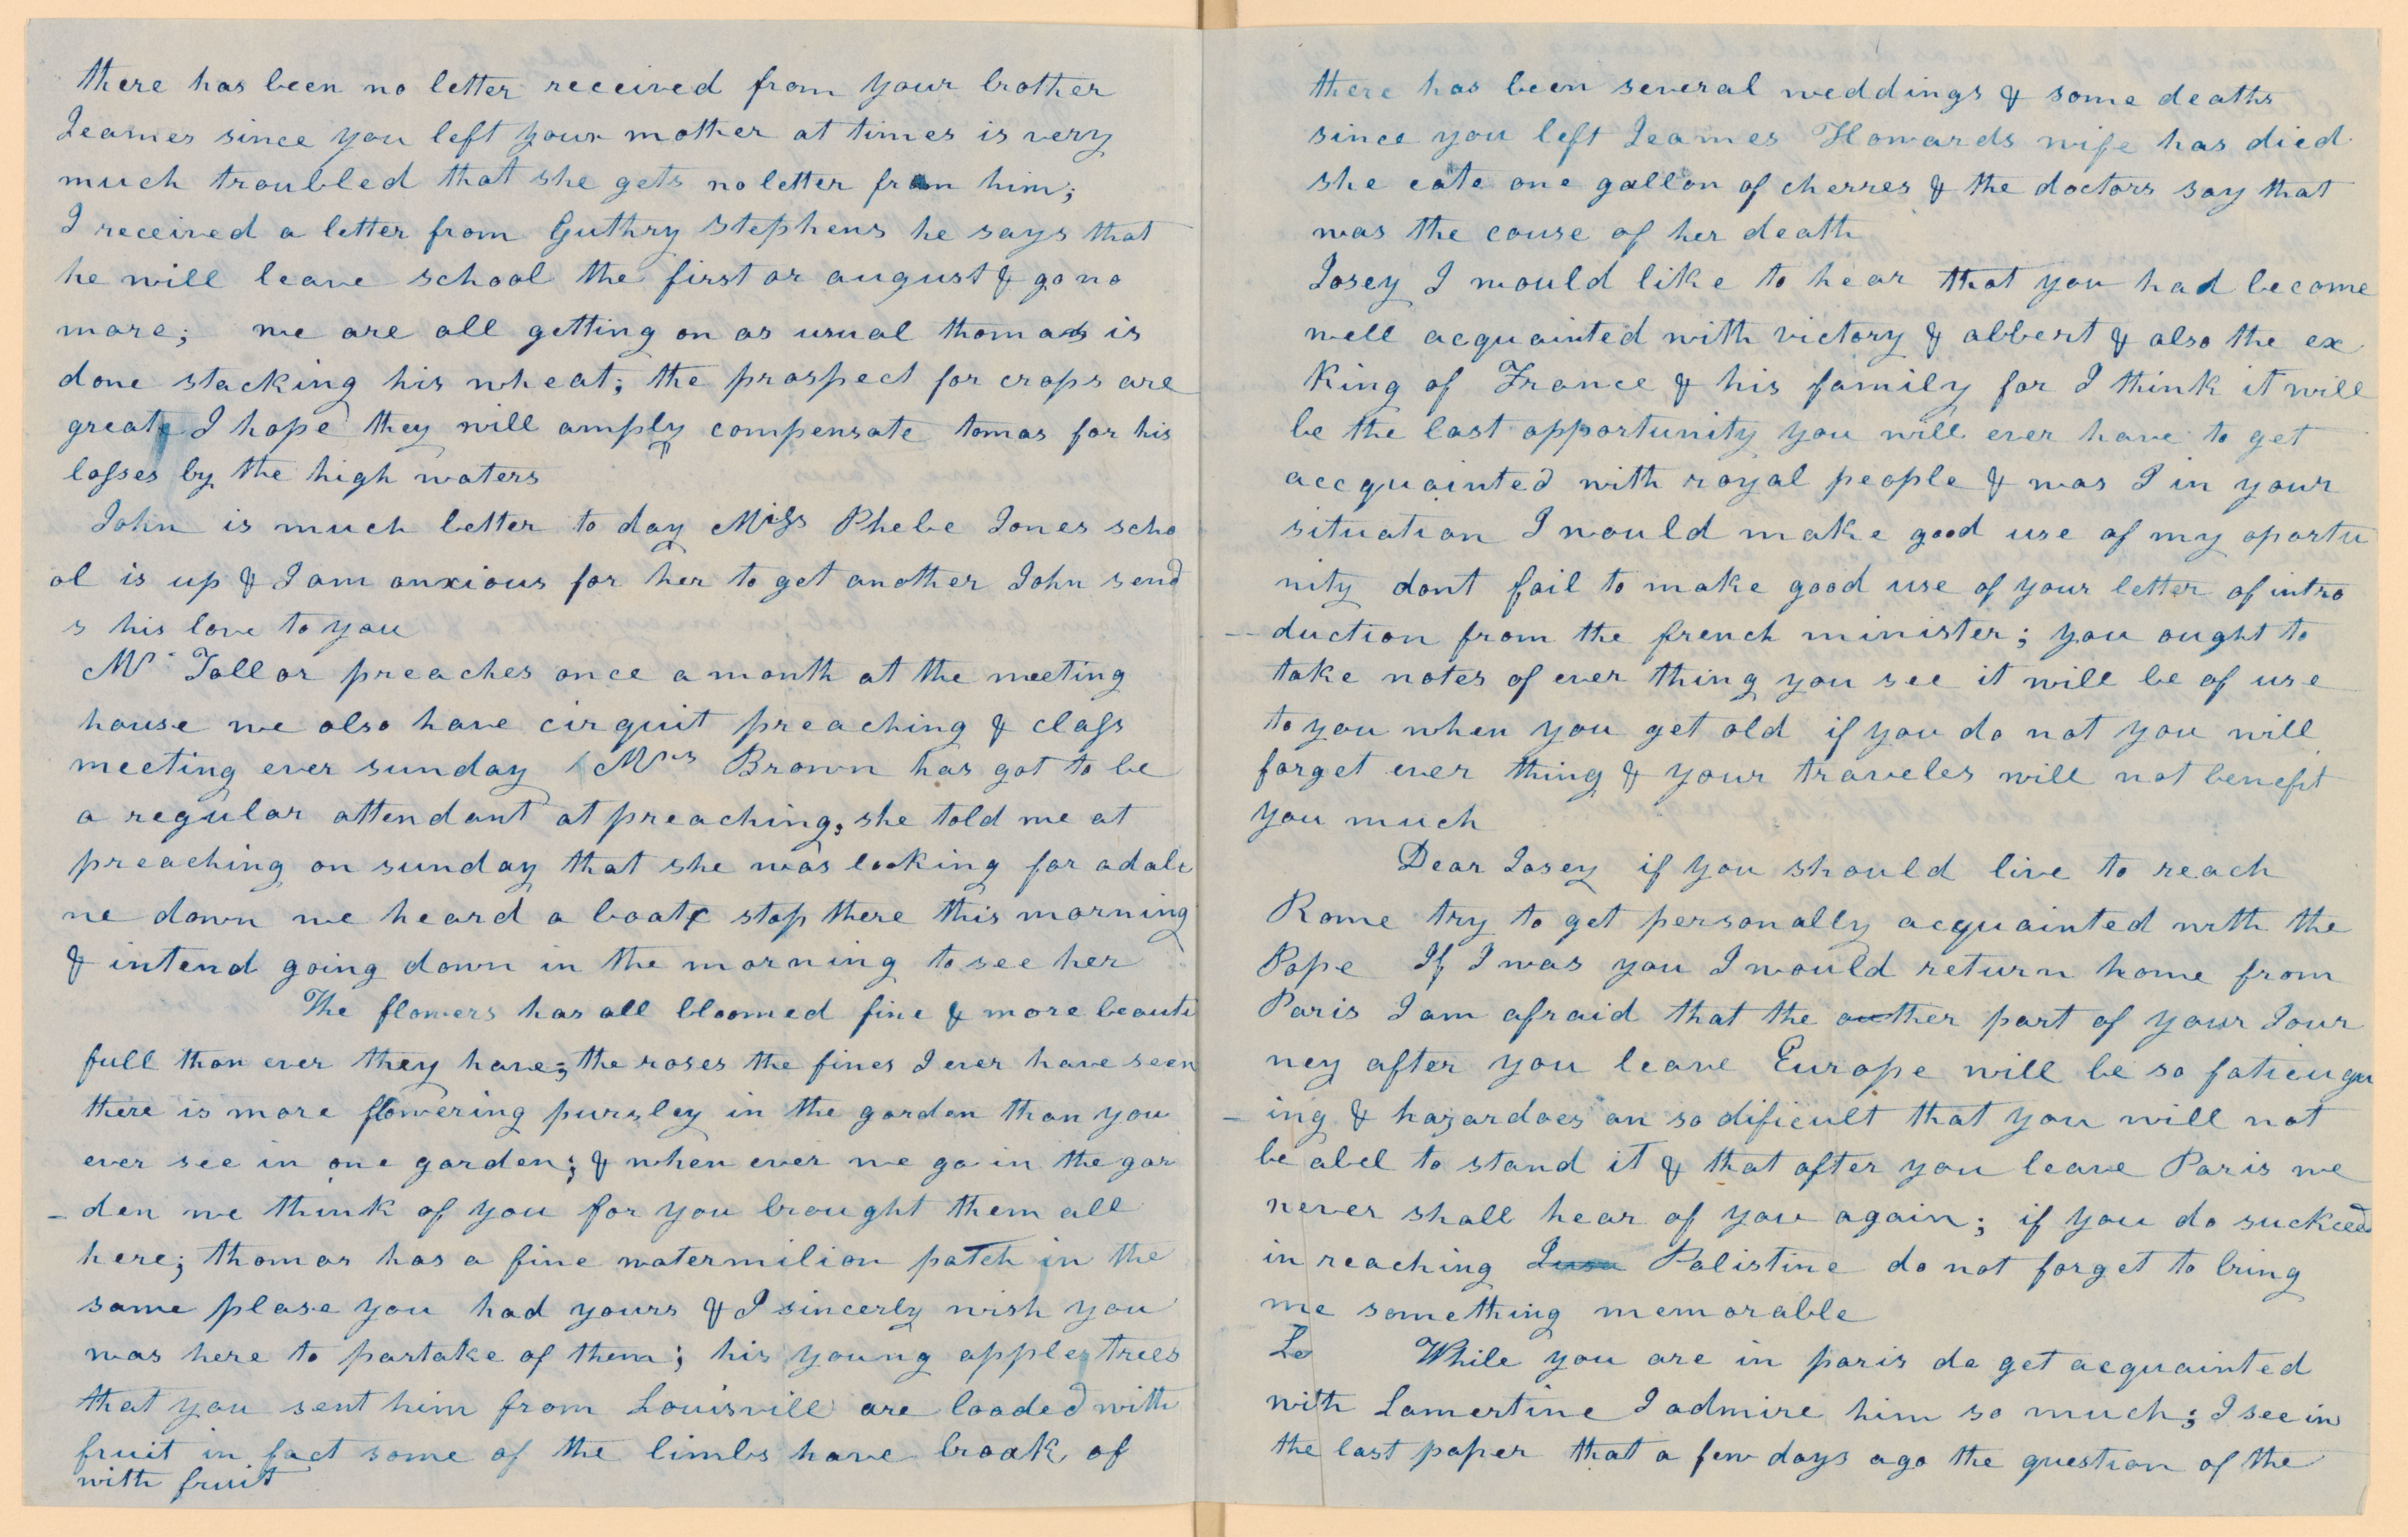 there has been no letter received from your brother
Jeames since you left your mother at times is very
much troubled that she gets no letter from him;
I received a letter from Guthry Stephens he says that
he will leave school the first or august & go no
more; we are all getting on as usual thomas is
done stacking his wheat; the prospect for crops are
great I hope they will amply compensate tomas for his
losses by the high waters
John is much better to day Miss Phebe Jones scho
ol is up & I am anxious for her to get another John send
s his love to you
Mr Tallor preaches once a month at the meeting
house we also have cirquit preaching & class
meeting ever sunday Mrs Brown has got to be
a regular attendant at preaching, she told me at
preaching on sunday that she was looking for adali
ne down we heard a boat stop there this morning
& intend going down in the morning to see her
The flowers has all bloomed fine & more beauti
full than ever they have; the roses the fines I ever have seen
there is more flowering pursley in the garden than you
ever see in one garden; & when ever we go in the gar
- den we think of you for you brought them all
here; thomas has a fine watermilion patch in the
same plase you had yours & I sincerly wish you
was here to partake of them; his young apple trees
that you sent him from Louisvill are loaded with
fruit in fact some of the limbs have broak of
with fruit
there has been several weddings & some deaths
since you left Jeames Howards wife has died
she eate one gallon of cherres & the doctors say that
was the couse of her death
Josey I would like to hear that you had become
well acquainted with victory & albert & also the ex
King of France & his family for I think it will
be the last opportunity you will ever have to get
accquainted with royal people & was I in your
situation I would make good use of my oportu
nity dont fail to make good use of your letter of intro
- duction from the french minister; you ought to
take notes of ever thing you see it will be of use
to you when you get old if you do not you will
forget ever thing & your traveles will not benefit
you much
Dear Josey if you should live to reach
Rome try to get personally acquainted with the
Pope If I was you I would return home from
Paris I am afraid that the outher part of your Jour
ney after you leave Europe will be so fatieugu
- ing & hazardoes an so dificult that you will not
be abel to stand it & that after you leave Paris we
never shall hear of you again; if you do suckceed
in reaching Palistine do not forget to bring
me something memorable
Le While you are in paris do get acquainted
with Lamertine I admire him so much; I see in
the last paper that a few days ago the question of the